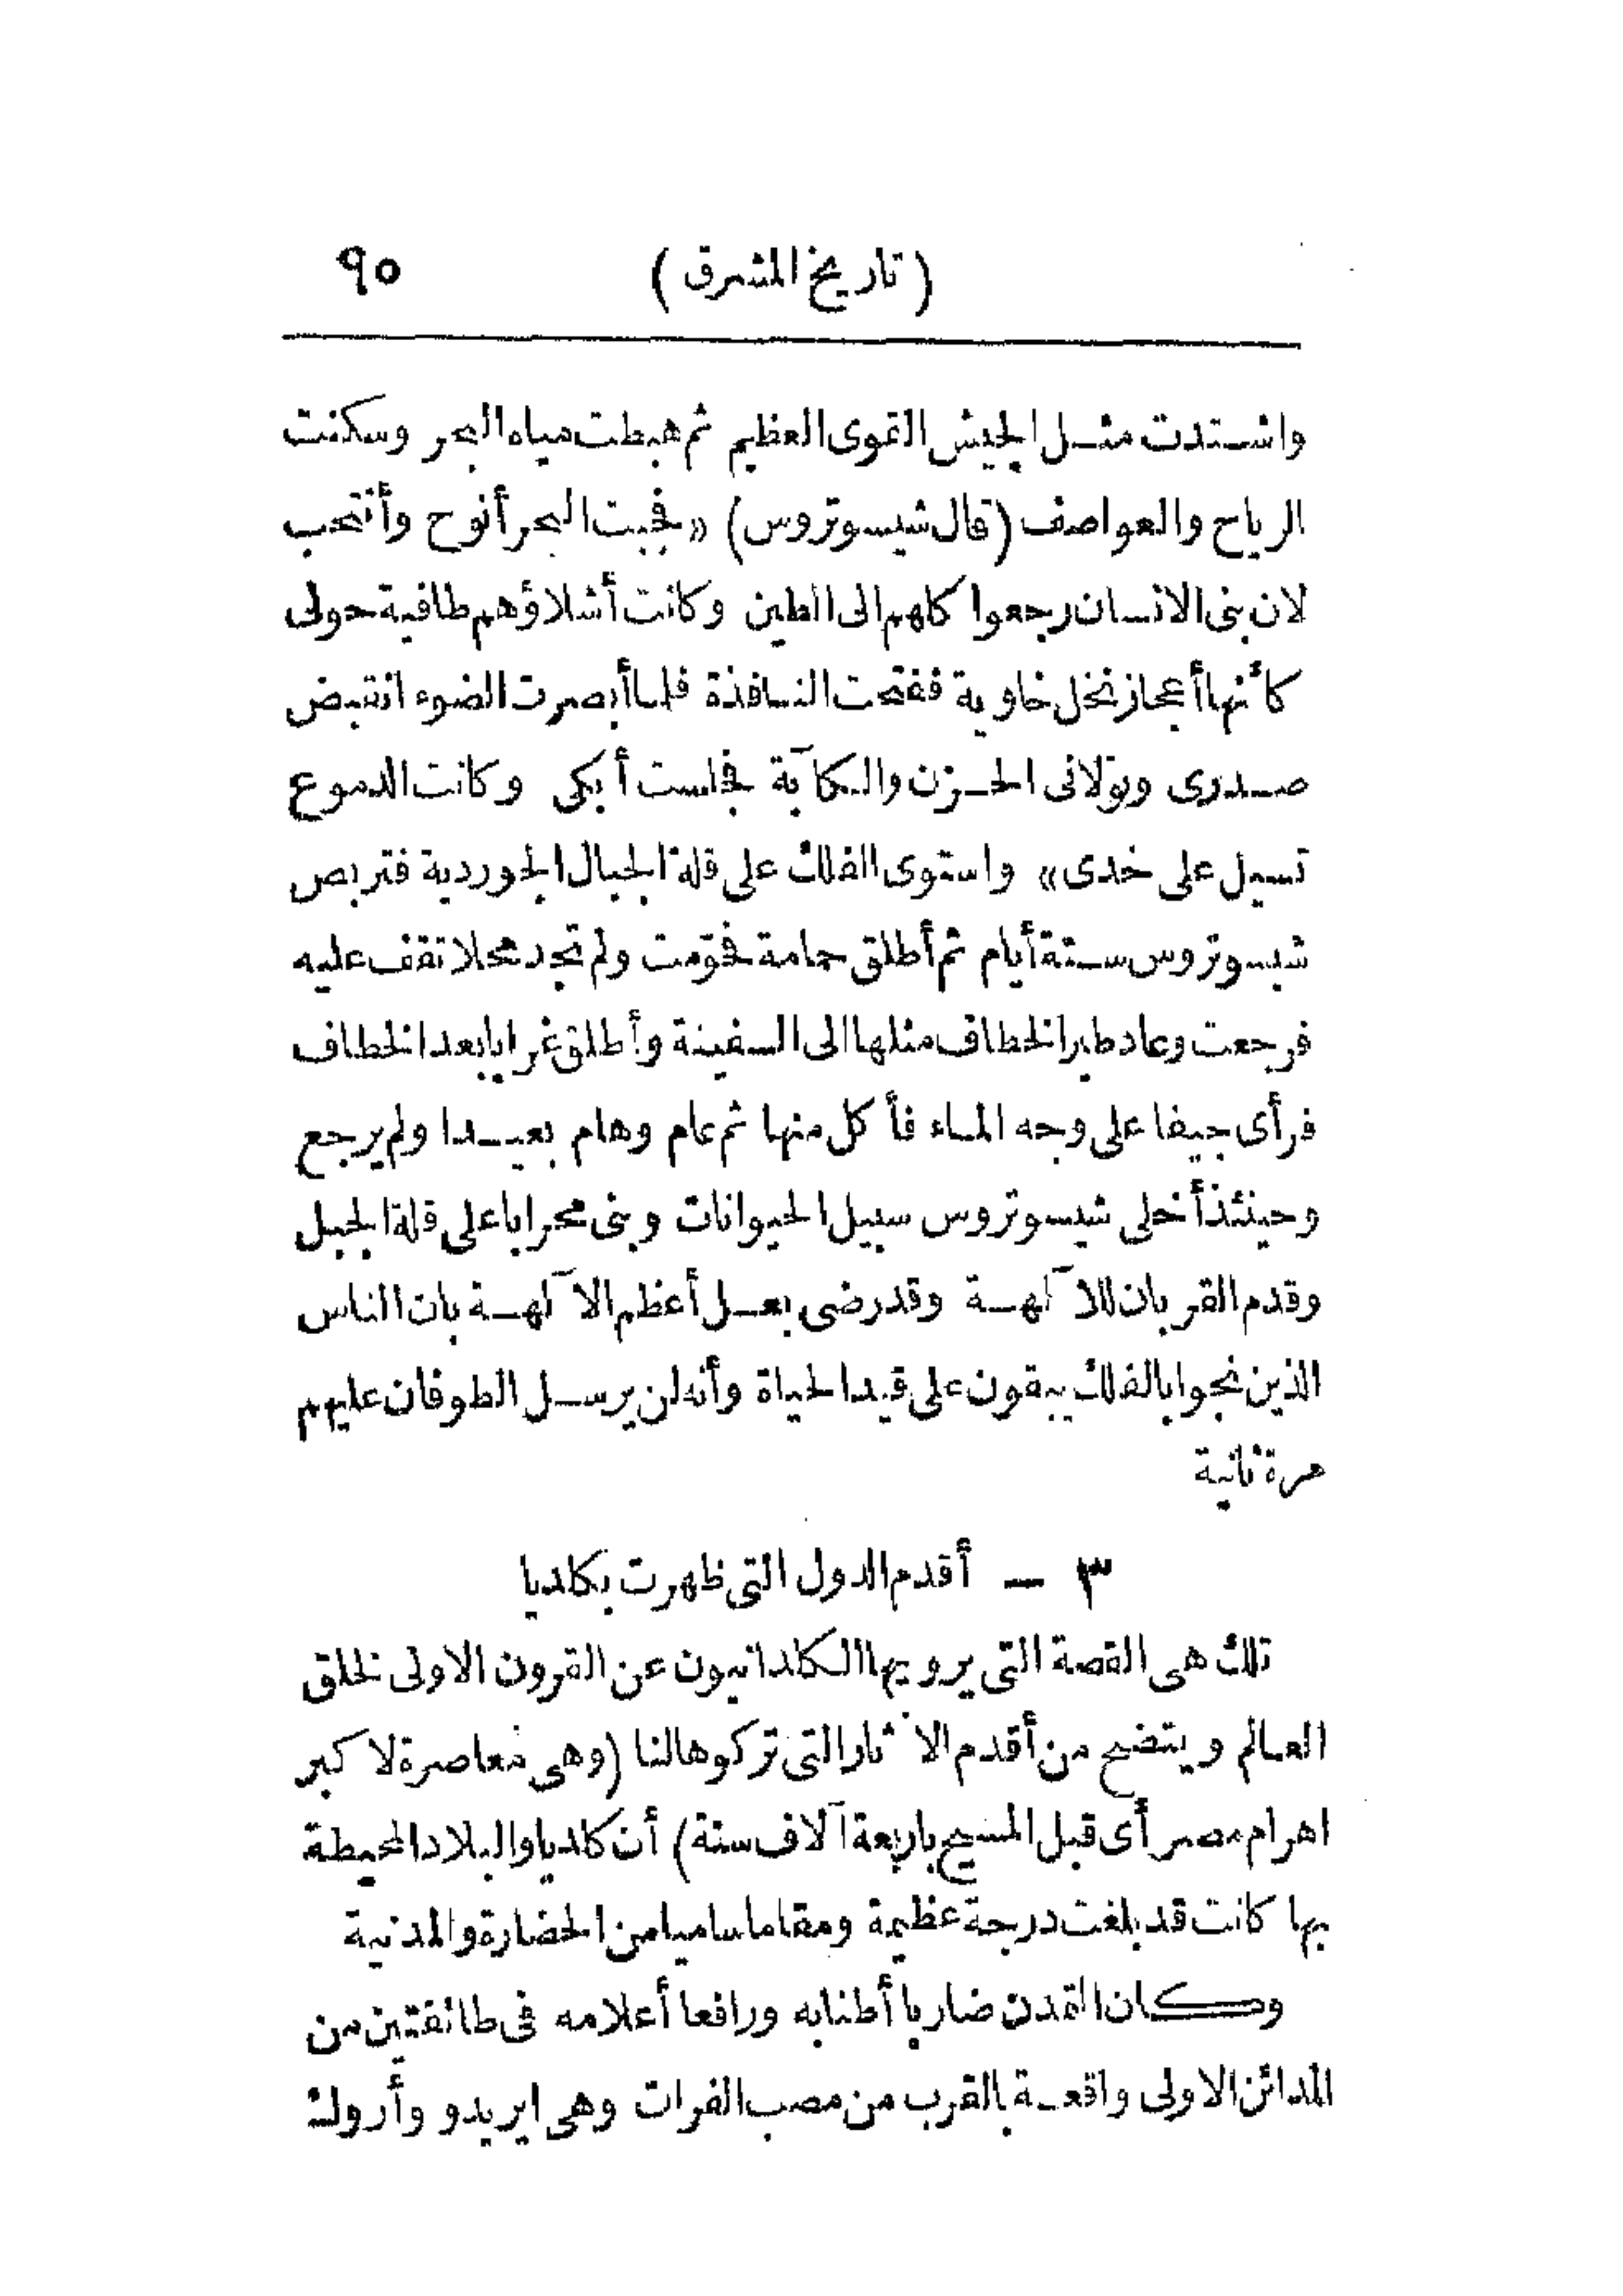 (تاريخ المشرق) ٩٥
واشتدت مثل الجيش القوى العظيم ثم هبطت مياه البحر وسكنت
الرياح والعواصف (قال شيسوتروس) «فجبت البحر أنوح وأنتحب
لان بنى الانسان رجعوا كلهم الى الطين وكانت أشلاؤهم طافية حولى
كأنها أعجاز نخل خاوية ففتحت النافذة فلما أبصرت الضوء انقبض
صدرى وتولانى الحزن والكآبة فجلست أبكى وكانت الدموع
تسيل على خدى» واستوى الفلك على قلة الجبال الجوردية فتربص
شيسوتروس ستة أيام ثم أطلق حمامة فحوّمت ولم تجد محلا تقف عليه
فرجعت وعاد طير الخطاف مثلها الى السفينة وأطلق غرابا بعد الخطاف
فرأى جيفا على وجه الماء فأكل منها ثم عام وهام بعيدا ولم يرجع
وحينئذ أخلى شيسوتروس سبيل الحيوانات وبنى محرابا على قلة الجبل
وقدم القربان للآلهة وقد رضى بعل أعظم الآلهة بان الناس
الذين نجوا بالفلك يبقون على قيد الحياة وأنه لن يرسل الطوفان عليهم
مرة ثانية
٣ — أقدم الدول التى ظهرت بكلديا
تلك هى القصة التى يرويها الكلدانيون عن القرون الاولى لخلق
العالم ويتضح من أقدم الآثار التى تركوها لنا (وهى معاصرة لاكبر
اهرام مصر أى قبل المسيح باربعة آلاف سنة) أن كلديا والبلاد المحيطة
بها كانت قد بلغت درجة عظيمة ومقاما ساميا من الحضارة والمدنية
وكان التمدن ضاربا أطنابه ورافعا أعلامه فى طائفتين من
المدائن الاولى واقعة بالقرب من مصب الفرات وهى ايريدو وأروك